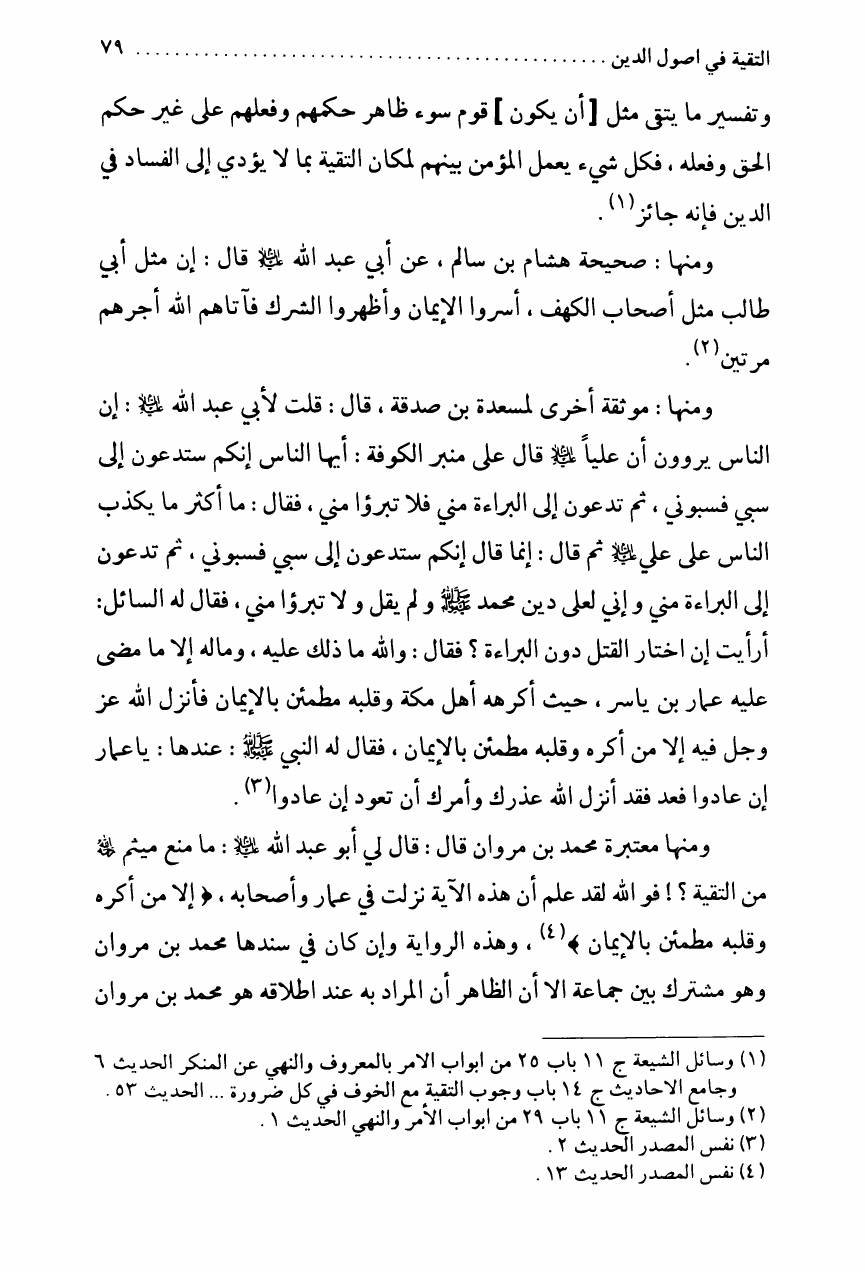 التقية في اصول الدين ................................................ ٧٩
وتفسير ما يتقى مثل [ أن يكون ] قوم سوء ظاهر حكمهم وفعلهم على غير حكم
الحق وفعله ، فكل شيء يعمل المؤمن بينهم لمكان التقية بما لا يؤدي إلى الفساد في
الدين فإنه جائز(١) .
ومنها : صحيحة هشام بن سالم ، عن أبي عبد الله عليه السلام قال : إن مثل أبي
طالب مثل أصحاب الكهف ، أسروا الإيمان وأظهروا الشرك فآتاهم الله أجرهم
مرتين(٢).
ومنها : موثقة أخرى لمسعدة بن صدقة ، قال : قلت لأبي عبد الله عليه السلام : إن
الناس يروون أن علياً عليه السلام قال على منبر الكوفة : أيها الناس إنكم ستدعون إلى
سبي فسبوني ، ثم تدعون إلى البراءة مني فلا تبرؤا مني ، فقال : ما أكثر ما يكذب
الناس على علي عليه السلام ثم قال : إنما قال إنكم ستدعون إلى سبي فسبوني ، ثم تدعون
إلى البراءة مني و إني لعلى دين محمد ﷺ و لم يقل و لا تبرؤا مني ، فقال له السائل:
أرأيت إن اختار القتل دون البراءة ؟ فقال : والله ما ذلك عليه ، وماله إلا ما مضى
عليه عمار بن ياسر ، حيث أكرهه أهل مكة وقلبه مطمئن بالإيمان فأنزل الله عز
وجل فيه إلا من أكره وقلبه مطمئن بالإيمان ، فقال له النبي ﷺ : عندها : ياعمار
إن عادوا فعد فقد أنزل الله عذرك وأمرك أن تعود إن عادوا(٣) .
ومنها معتبرة محمد بن مروان قال : قال لي أبو عبد الله عليه السلام : ما منع ميثم
من التقية ؟ ! فو الله لقد علم أن هذه الآية نزلت في عمار وأصحابه ، ﴿ إلا من أكره
وقلبه مطمئن بالإيمان ﴾(٤) ، وهذه الرواية وإن كان في سندها محمد بن مروان
وهو مشترك بين جماعة الا أن الظاهر أن المراد به عند اطلاقه هو محمد بن مروان
(١) وسائل الشيعة ج ١١ باب ٢٥ من ابواب الامر بالمعروف والنهي عن المنكر الحديث ٦
وجامع الاحاديث ج ١٤ باب وجوب التقية مع الخوف في كل ضرورة ... الحديث ٥٣ .
(٢) وسائل الشيعة ج ١١ باب ٢٩ من ابواب الأمر والنهي الحديث ١ .
(٣) نفس المصدر الحديث ٢ .
(٤) نفس المصدر الحديث ١٣ .